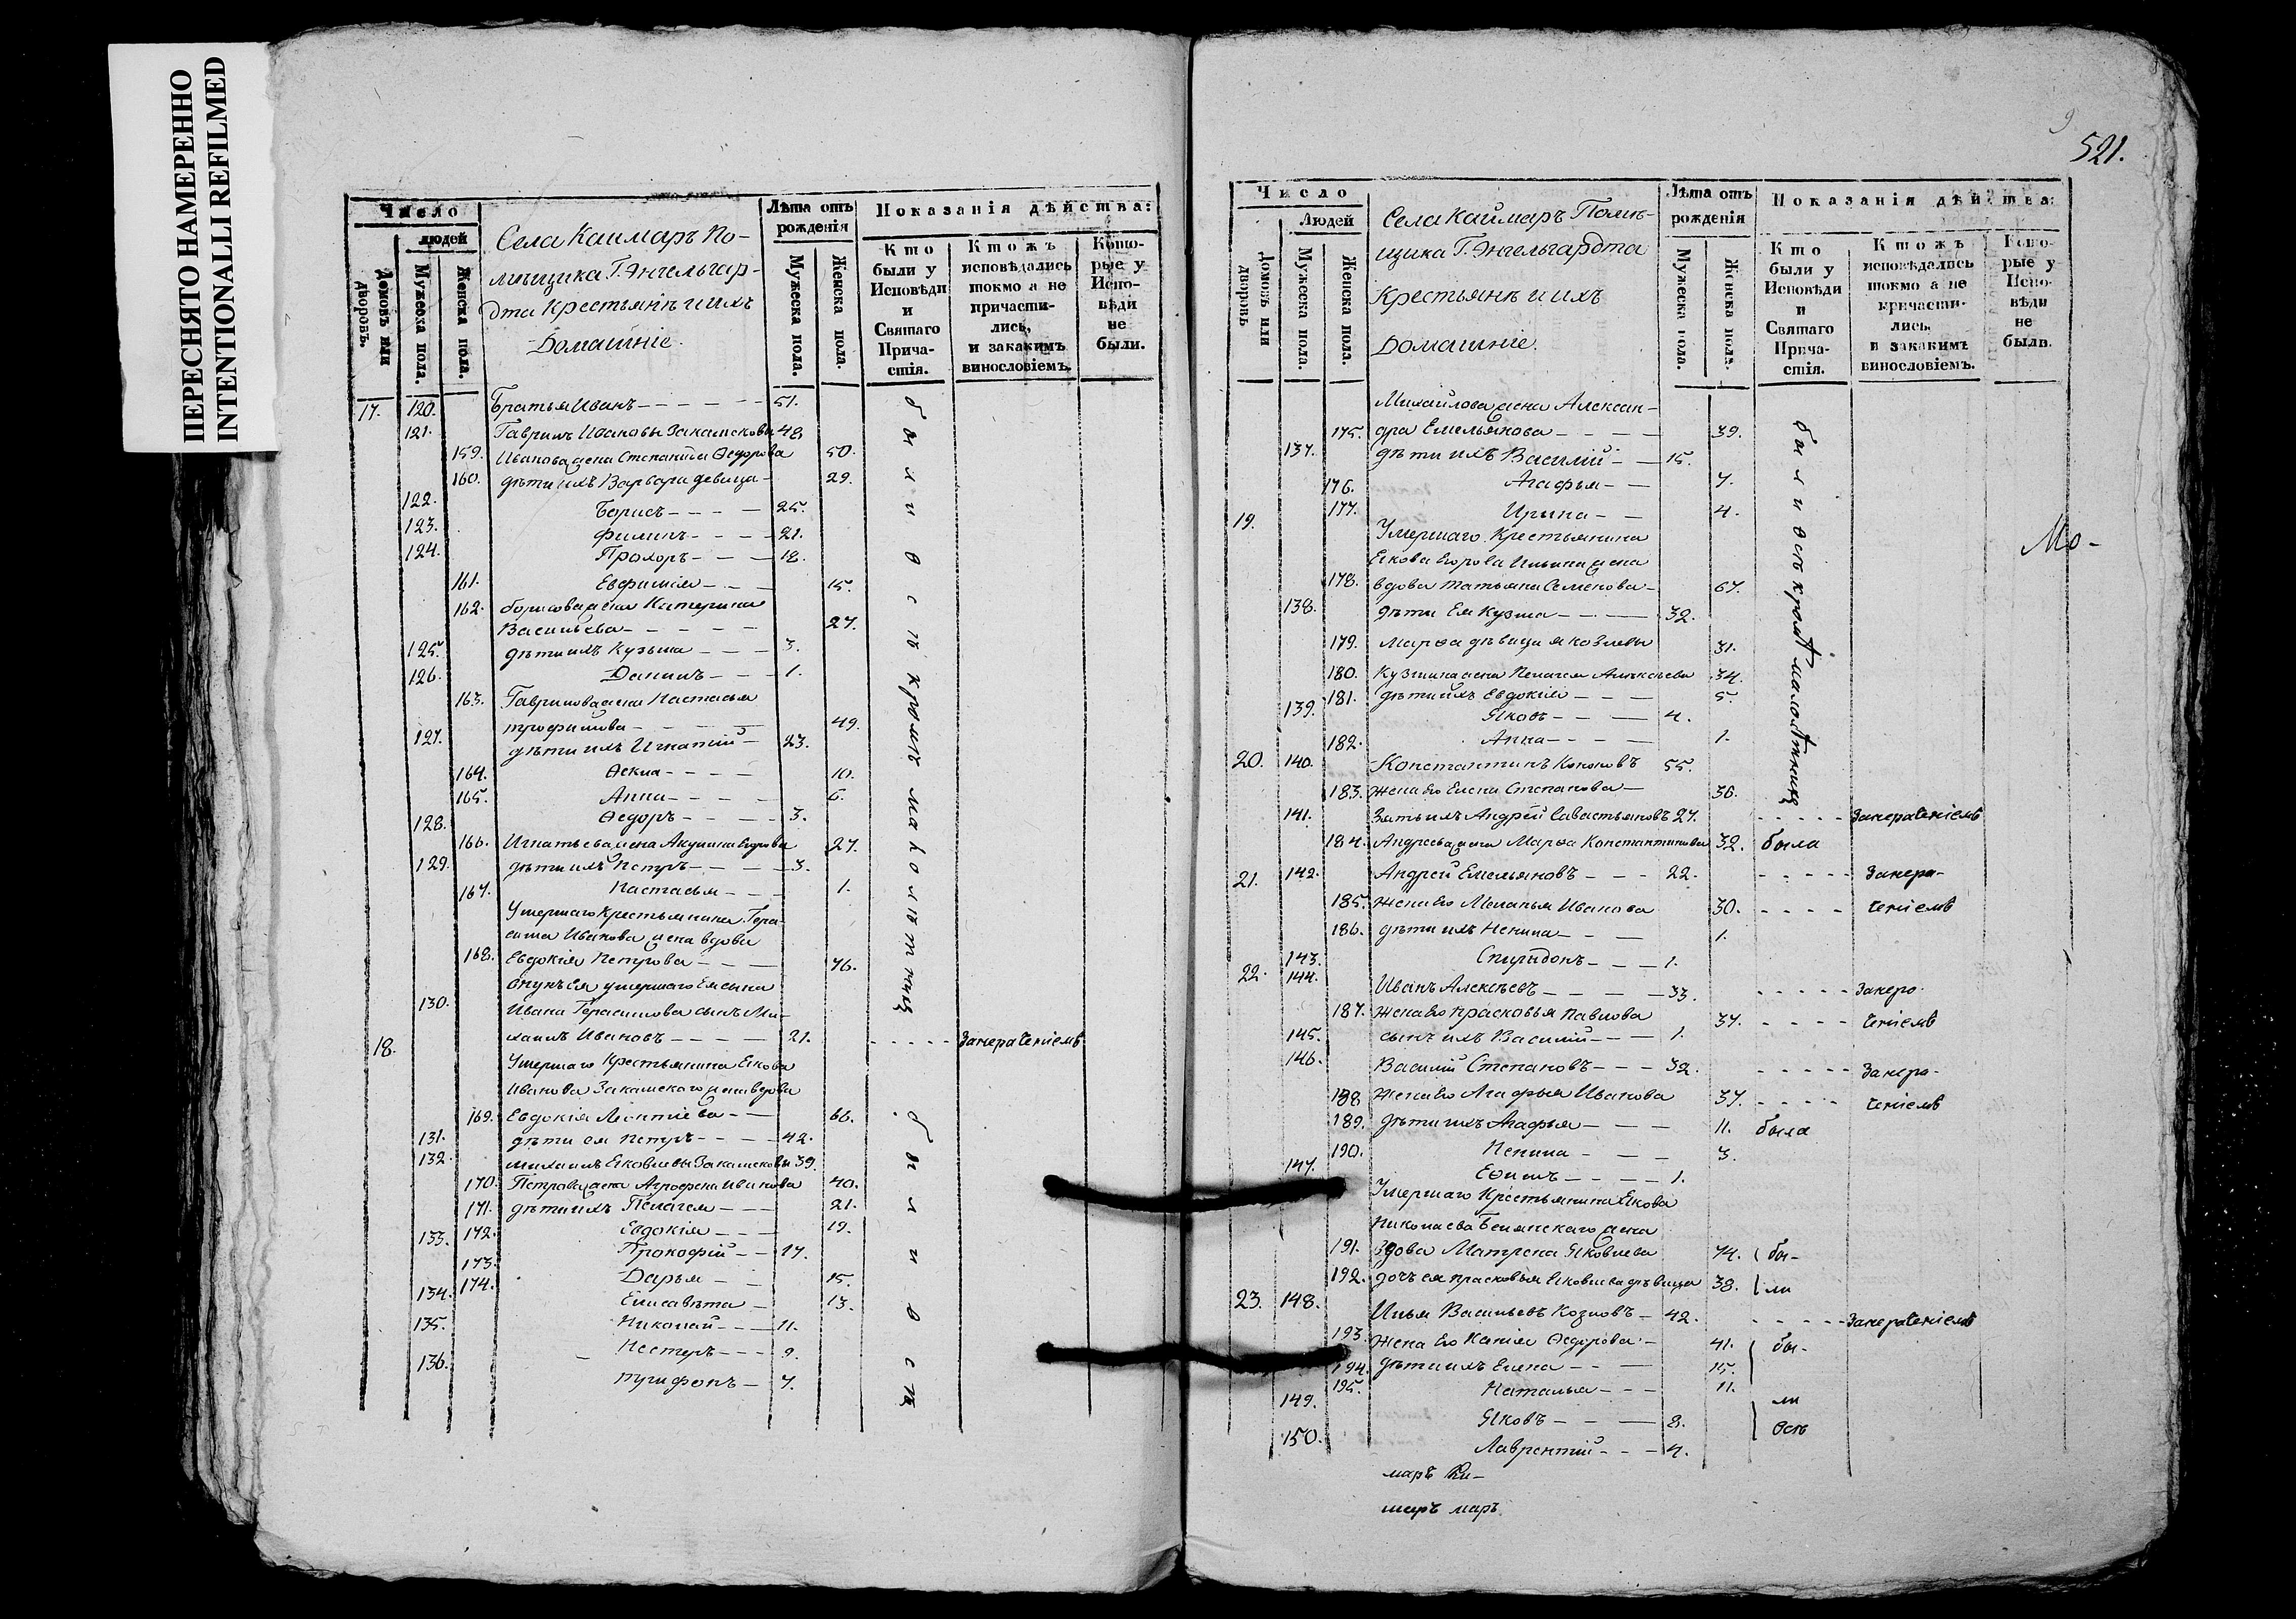 ПЕРЕСНЯТО НАМЕРЕННО
INTENTIONALLI REFILMED
Число
людей
Домовъ или дворовъ.
Мужеска пола.
Женска пола.
Села Каймаръ По-
мѣщика Г. Энгельгар-
дта Крестьянѣ и ихъ
Домашніе.
Лѣта отъ рожденія
Мужеска пола.
Женска пола.
Показанія дѣйства:
Кто были у Исповѣди и Святаго Причастія.
Ктожъ исповѣдались токмо а не причасти-лись, и закакимъ винословіемъ.
Кото-рые у Испо-вѣди не были.
17. 120. Братья Иванъ - - - - 51.
121. Гаврилъ Ивановы Закамсковы 48
159. Иванова жена Степанида Ѳедорова 50.
160. дѣти ихъ Варвара девица - 29.
122. Борисъ - - - - 25.
123. Филипъ - - - - 21.
124. Прохоръ - - - 18.
161. Евфимія - - - 15.
162. борисова жена Катерина
Васильева - - - - - 27.
125. дѣти ихъ Кузьма - - - 3.
126. Данилъ - - - 1.
163. Гаврилова жена Настасья
трофимова - - - - 49.
127. дѣти ихъ Игнатій - 23.
164. Ѳекла - - - - 10.
165. Анна - - - - 6.
128. Ѳедоръ - - - - 3.
166. Игнатьева жена Акулина Егорова 27.
129. дѣти ихъ Петръ - - - - 3.
167. Настасья - - - 1.
Умершаго Крестьянина Гера-
сима Иванова жена вдова
168. Евдокія Петрова - - - 76.
внукъ Ея умершаго Ея сына
130. Ивана Герасимова сынъ Ми-
хаилъ Ивановъ - - - - 21. - - - - - Занерачениемъ
18. Умершаго Крестьянина Якова
Иванова Закамского жена вдова
169. Евдокія Леонтіева - - 66.
131. дѣти ея Петръ - - - - 42.
132. михаилъ Яковлевы Закамсковы 39.
170. Петрова жена Агрофена Иванова 40.
171. дѣти ихъ Пелагея - - - 21.
172. Евдокія - - - 19.
133. Прокофій - - 17.
173. Дарья - - 15.
174. Елисавѣта - 13.
134. Николай - - - 11.
135. Нестеръ - - - 9.
136. трифонъ - 7.
были всѣ кромѣ малолѣтныхъ
были всѣ
521.
Число
Людей
Домовъ или дворовъ
Мужеска пола.
Женска пола.
Села Каймаръ Помѣ-
щика Г. Энгельгардта
Крестьянѣ и ихъ
Домашніе.
Лѣта отъ рожденія
Мужеска пола.
Женска пола.
Показанія дѣйства:
Кто были у Исповѣди и Святаго Прича-стія.
Ктожъ исповѣдались токмо а не причасти-лись, и закакимъ винословіемъ.
Кото-рые у Испо-вѣди не были.
Михайлова жена Алексан-
175. дра Емельянова - - - - 39.
137. дѣти ихъ Василій - - 15.
176. Агафья - - 7.
177. Ирина - - 4.
19. Умершаго Крестьянина
Якова Егорова Ильина жена
178. вдова татьяна Семенова - 67.
138. дѣти Ея Кузма - - - - 32.
179. Марѳа дѣвица яковлевы 31.
180. Кузмина жена Пелагея Алексѣева 34.
181. дѣти ихъ Евдокія - - - 5.
139. Яковъ - - - 4.
182. Анна - - - - 1.
20. 140. Константинъ Кононовъ 55.
183. Жена Его Елена Степанова - 36.
141. Зять ихъ Андрей Савастьяновъ 27. - - - - - Занерачениемъ
184. Андреева жена Марѳа Константинова 32. была
21. 142. Андрей Емельяновъ - - - 22. - - - - - Занера-
185. Жена Его Меланья Иванова 30. - - - - чениемъ
186. дѣти ихъ Ненила - - - 1.
143. Спиридонъ - - - 1.
22. 144. Иванъ Алексѣевъ - - - - 33. - - - - - Занера-
187. Жена Его Прасковья Павлова 37. - - - - чениемъ
145. сынъ ихъ Василій - - - 1.
146. Василій Степановъ - - - 32. - - - - - Занера-
188 Жена Его Агафья Иванова 37. - - - - чениемъ
189. дѣти ихъ Агафья - - - 11. была
190. Ненила - - - 3.
147. Ефимъ - - - - 1.
Умершаго Крестьянина Якова
Николаева Белянскаго жена
191. Вдова Матрена Яковлева 74. бы-
192. дочь ея прасковья Яковлева дѣвица 38. ли
23. 148. Илья Васильевъ Козловъ - 42. - - - - - Занерачениемъ
193. Жена Его Ксенія Ѳедорова - 41. бы-
194. дѣти ихъ Елена - - - 15.
195. Наталья - - - 11. ли
149. Яковъ - - - 8. всѣ
150. Лаврентій - - - 4.
были всѣ кромѣ малолѣтныхъ
Мо-
маръ Ки-
маръ